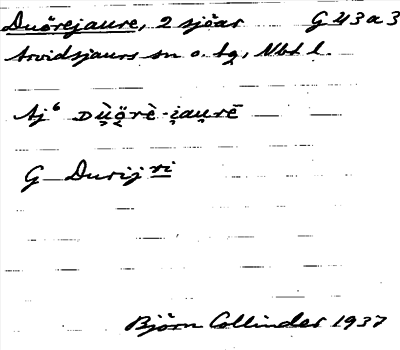 Duörejaure, 2 sjöar G 43 a 3
Arvidsjaurs sn o. tg, Nbt l.
Aj⁶ Dụ̀ö̀rè-i̯au̯rē
G Durij ri
Björn Collinder 1937